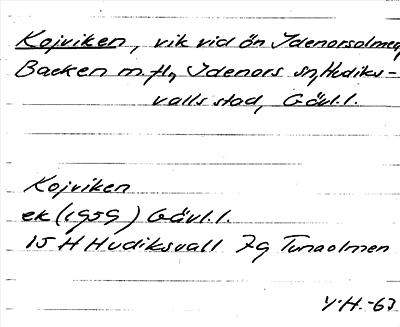 Kojviken, vik vid ön Idenorsolmen,
Backen m.fl., Idenors sn, Hudiks-
valls stad, Gävl.l.
Kojviken
ek (1959) Gävl.l.
15 H Hudiksvall 7g Tunaolmen
V.H.-63